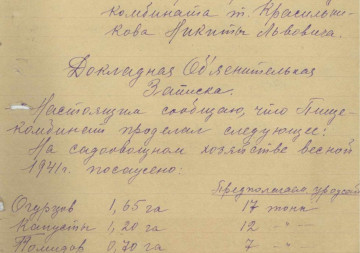 комбината т. Красильни-
кова Никиты Львовича.
Докладная Объяснительная
Записка.
Настоящим сообщаю, что Пище-
комбинат проделал следующее:
На садоовощном хозяйстве весной
1941 г. посеяно:
Предполагаем. урожай
Огурцов 1,65 га 17 тонн
Капусты 1,20 га 12 - " -
Помидор 0,70 га 7 - " -